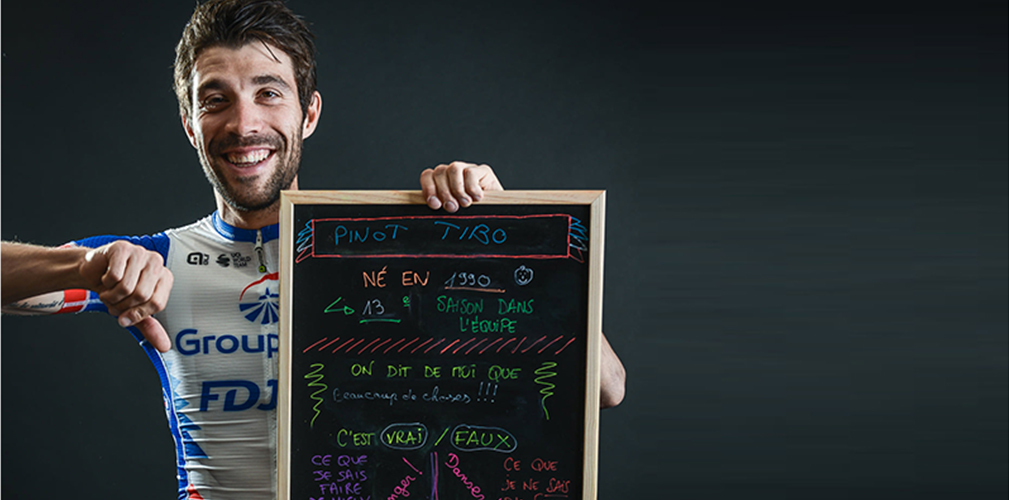 PINOT TIBO
NÉ EN 1990
13e SAISON DANS
L'ÉQUIPE
ON DIT DE MOI QUE
Beaucoup de choses !!!
C'EST VRAI / FAUX
CE QUE
JE SAIS
FAIRE
Danser
CE QUE
JE NE SAIS
Groupa
FDJ